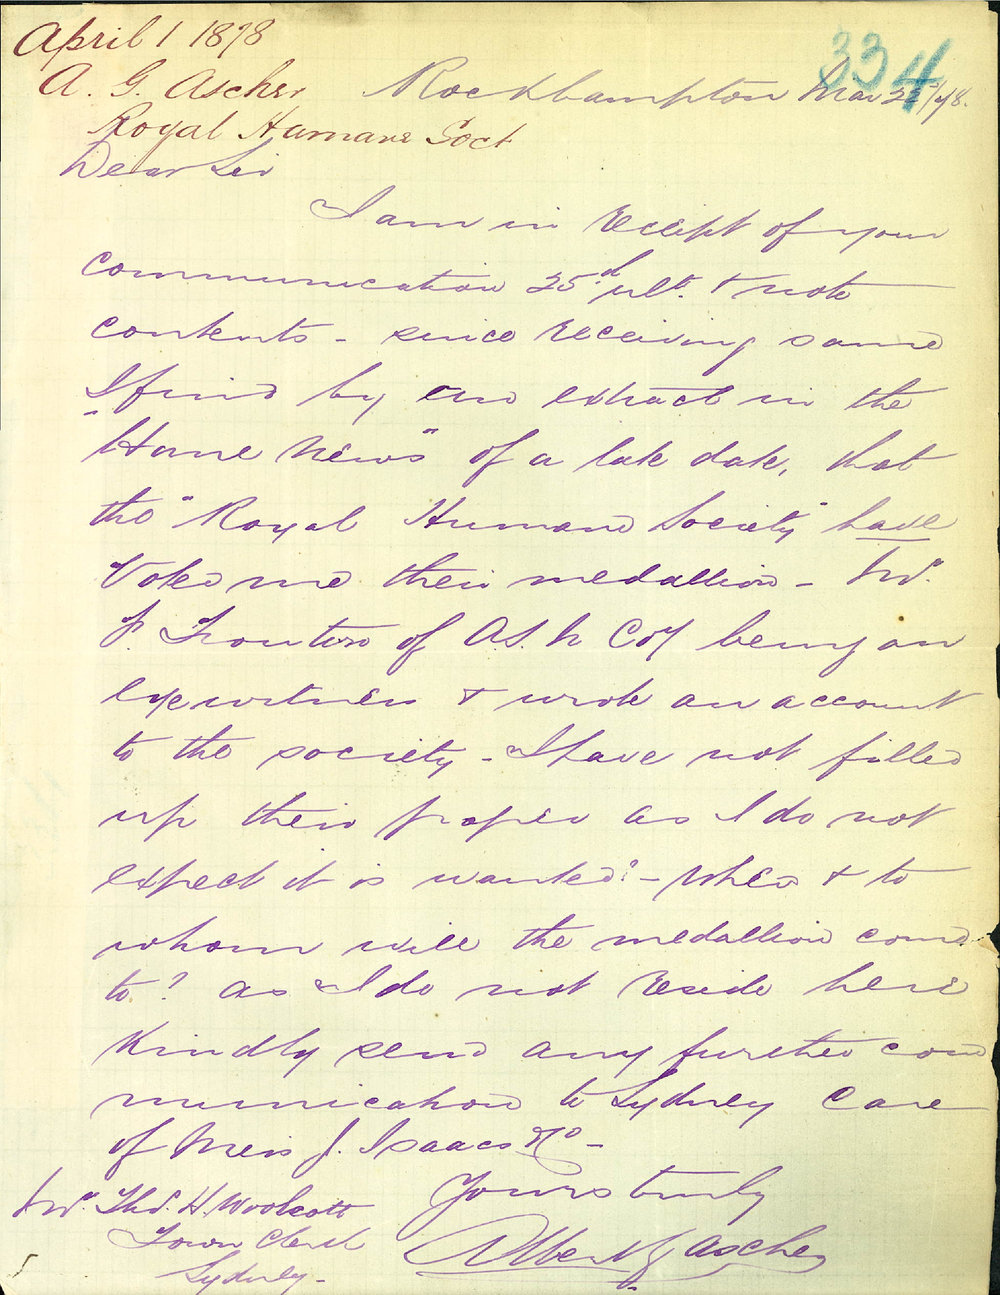 April 1 1878
334
A. G. Ascher
Rockhampton Mar 22/78.
Royal Humane Soct
Dear Sir
I am in receipt of your
communication 25d ult. & note
contents - since receiving same
I find by an extract in the
"Home News" of a late date, that
the "Royal Humane Society" have
Voted me their medallion - Mr.
F. of A.S.N Coy being an
eyewitness & wrote an account
to the society - I have not filled
up their paper as I do not
expect it is wanted? - when & to
whom will the medallion come
to? as I do not reside here
Kindly send any further com
munication to Sydney Care
of Mess J. Isaacs & Co -
Yours truly
Albert G Ascher
Mr. Thos. H. Woolcott
Town Clerk
Sydney -